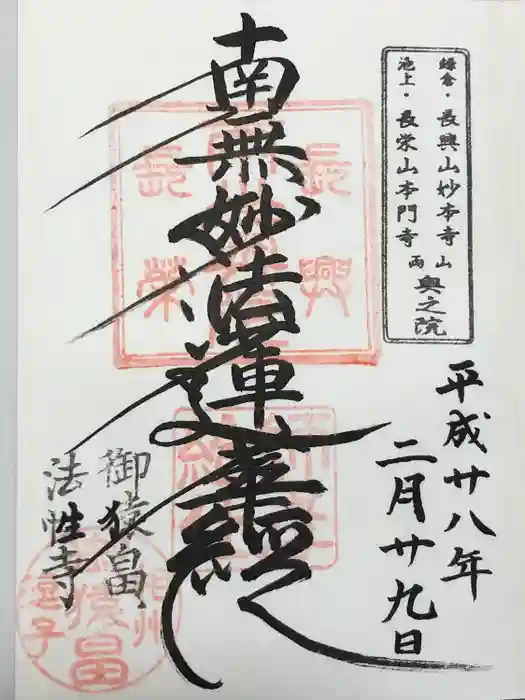 鎌倉・長興山妙本寺
池上・長栄山本門寺
両山
奥之院
平成廿八年
二月廿九日
南無妙法蓮華経
御猿畠
法性寺
長興
長榮
猿畠
逗子